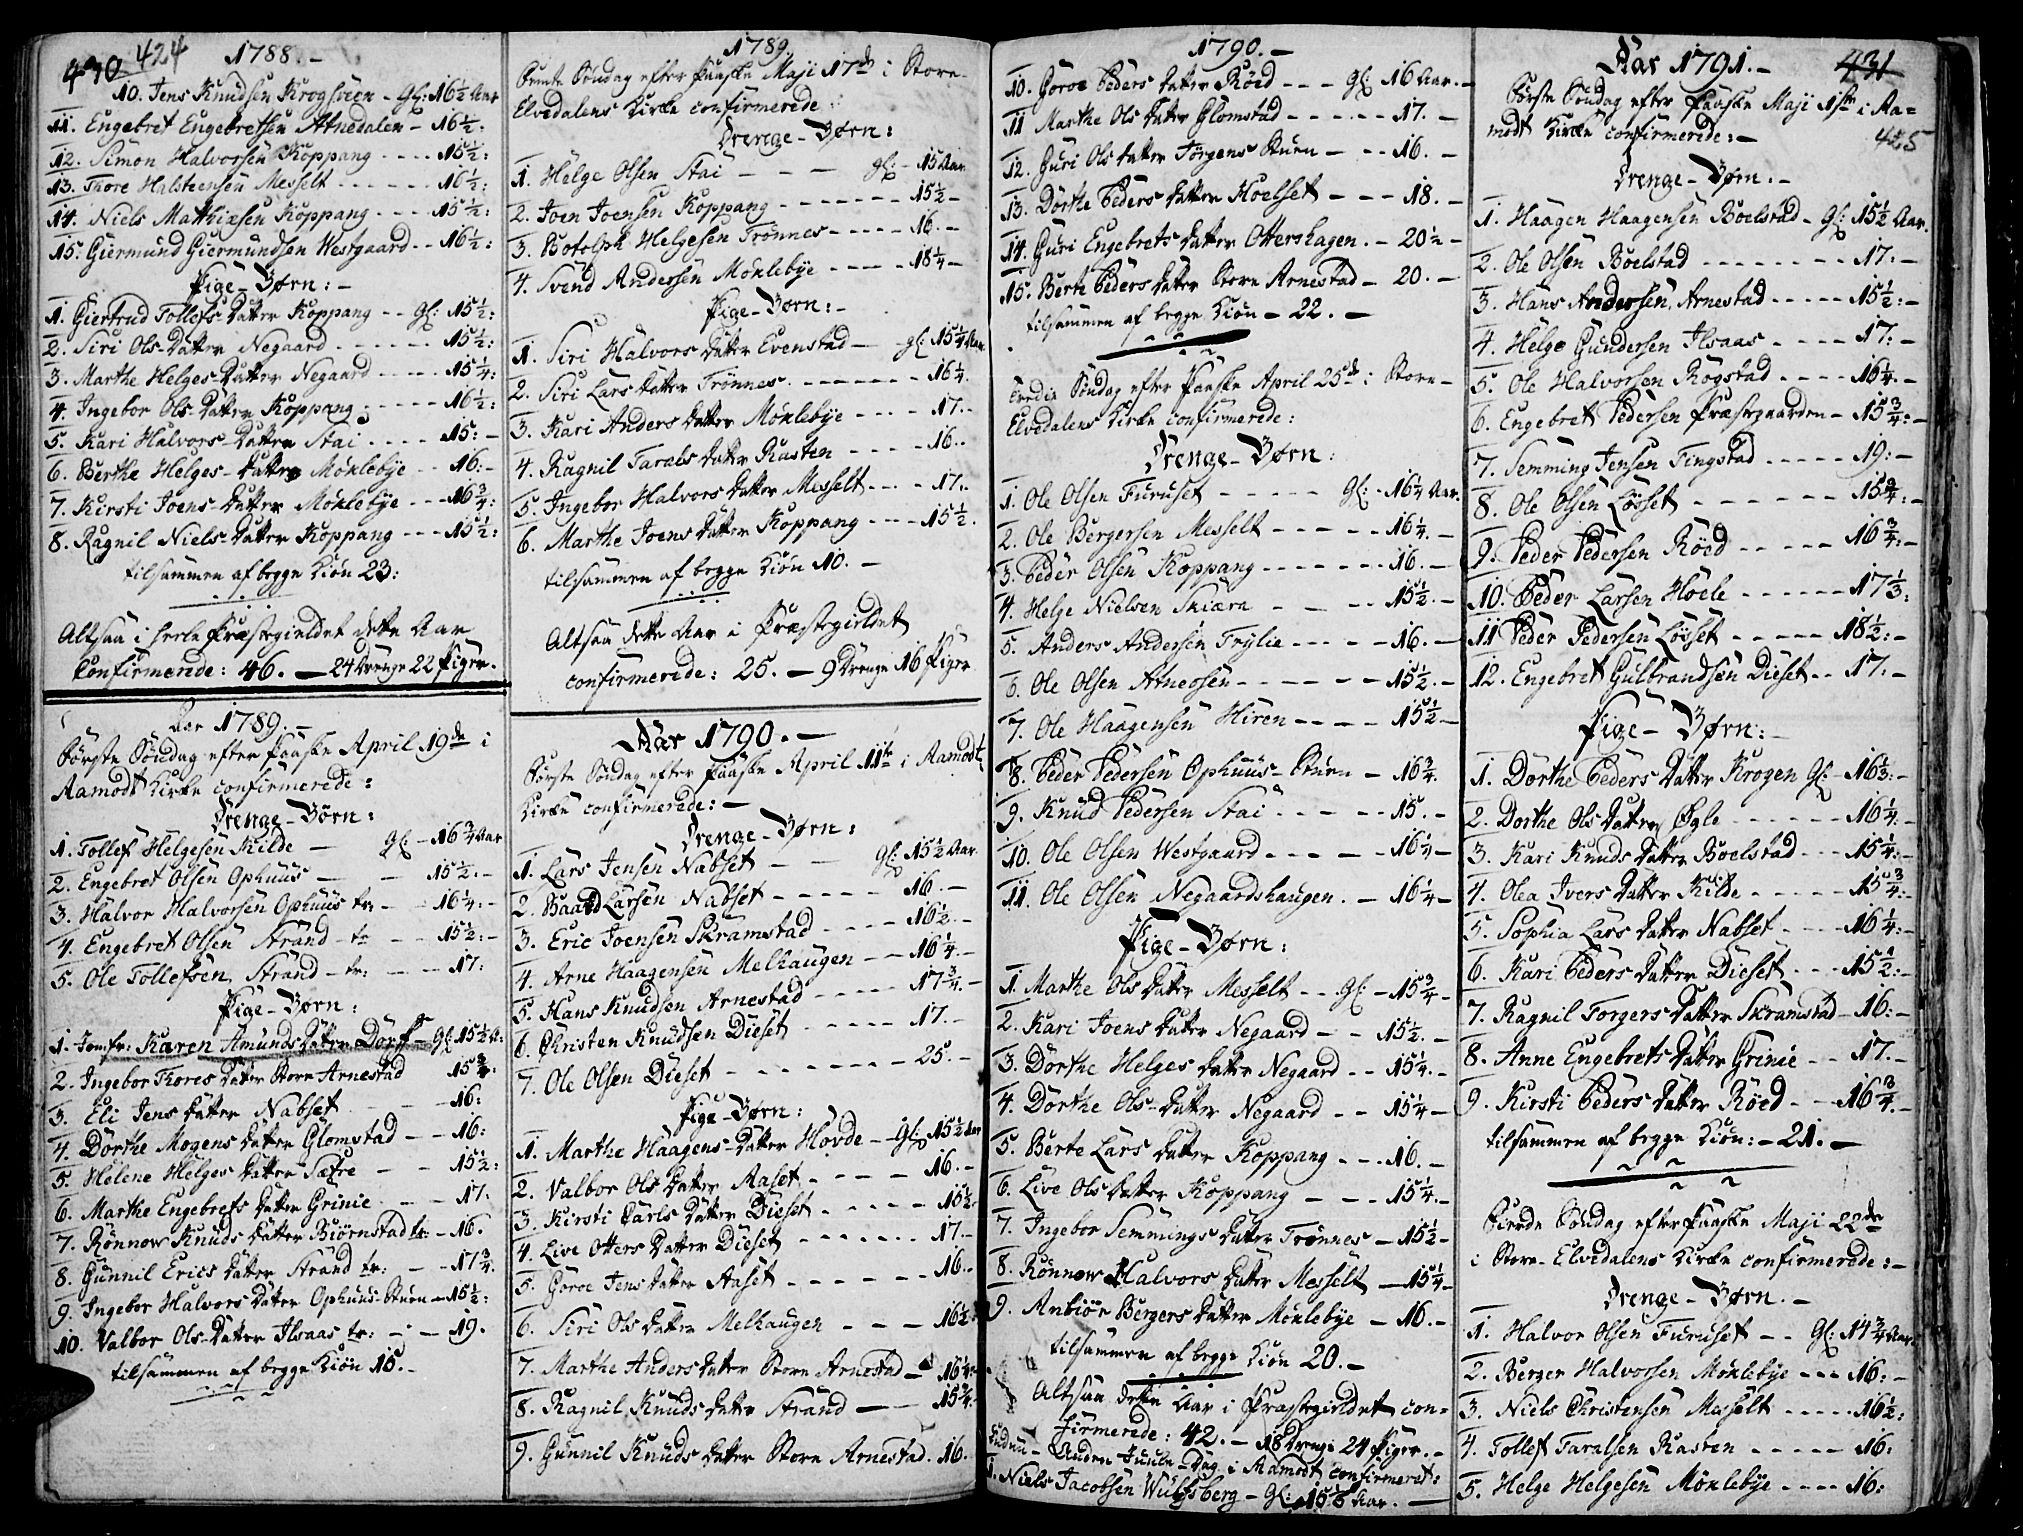 430 424
1788. –
10. Jens Knudsen Krogsveen – gl: 16½ Aar
11. Engebret Engebretsen Atnedalen – 16½:
12. Simon Halvorsen Koppang - - - - 15½:
13. Thore Halsteensen Messelt - - - - - 16½:
14. Niels Matthiæsen Koppang - - - 15½:
15. Giermund Giermundsen Westgaard - - 16½:
Pige-Børn: –
1. Giertrud Tollefs-Datter Koppang - - gl: 15½:
2. Siri Ols-Datter Negaard - - - - - - 15½:
3. Marthe Helges Datter Negaard - - - - 15¼:
4. Ingebor Ols-Datter Koppang - - - - - 16½:
5. Kari Halvors-Datter Stai - - - - 15: –
6. Berthe Helges-Datter Mönlebye - - 16: –
7. Kirsti Joens-Datter Mönlebye - - - 16¾:
8. Ragnil Niels Datter Koppang - - - 15½:
tilsammen af begge Kiön 23:
Altsaa i heele Præstegieldet dette Aar
Confirmerede: 46. – 24 Drenge 22 Piger.
Aar 1789. –
Förste Söndag efter Paaske April 19de i
Aamodt Kirke confirmerede:
Drenge-Börn:
1. Tollef Helgesen Kilde – gl: – 16¾ Aar
2. Engebret Olsen Ophuus – – 15½: –
3. Halvor Halvorsen Ophuus tr: – 16¼: –
4. Engebret Olsen Strand – tr – – 15½: –
5. Ole Tollefsen Strand – tr: – – 17:
Pige-Börn:
1. Jomfr: Karen Amunds Datter Dorf – gl: 15½ A:
2. Ingebor Thores Datter Store Arnestad 15¾:
3. Eli Jens Datter Nabset – – – 16:
4. Dorthe Mogens Datter Glomstad – – 16:
5. Helene Helges Datter Sætre – – 15½:
6. Marthe Engebrets Datter Grinie – – 17:
7. Rönnow Knuds Datter Biörnstad tr: – 16.
8. Gunnil Erics Datter Strand tr: – – 17¾.
9. Ingebor Halvors Datter Ophuus-Stuen – 15½:
10. Valbor Ols-Datter Ilsaas tr: – – 19.
tilsammen af begge Kiön 15. –
1789.
Femte Söndag efter Paaske Maji 17de i Store-
Elvedalens Kirke confirmerede:
Drenge-Börn:
1. Helge Olsen Stai – – – gl: – 15 Aar
2. Joen Joensen Koppang - - - - - - - 15½ –
3. Botolph Helgesen Trönnes - - - - - 16. –
4. Svend Andersen Mönlebye - - - - - 18¼ –
Pige-Börn: –
1. Siri Halvors Datter Evenstad – gl: 15¼ Aar
2. Siri Lars Datter Trönnes - - - - - - - 16¼.
3. Kari Anders Datter Mönlebye - - - - 17. –
4. Ragnil Tarals Datter Rasten - - - - 16. –
5. Ingebor Halvors Datter Messelt - - - 17. –
6. Marthe Joens Datter Koppang - - - 15½.
tilsammen af begge Kiön 10. –
Altsaa dette Aar i Præstegieldet
confirmerede: 25. – 9 Drenge 16 Piger
Aar 1790. –
Förste Söndag efter Paaske April 11te i Aamodt
Kirke confirmerede: –
Drenge-Börn:
1. Lars Jensen Nabset – – gl: 15½ Aar.
2. Baard Larsen Nabset - - - - - - 16. –
3. Eric Joensen Skramstad - - - - 16½. –
4. Arne Haagensen Melhaugen - - 16¼. –
5. Hans Knudsen Arnestad - - - - - 17¾. –
6. Christen Knudsen Dieset - - - - - 17. –
7. Ole Olsen Dieset - - - - - - - 25. –
Pige-Börn:
1. Marthe Haagens-Datter Hovde – gl: 15½ Aar
2. Valbor Ols Datter Aaset - - - - - 16. –
3. Kirsti Carls Datter Dieset - - - - - 15½
4. Live Otters Datter Dieset - - - - - - - 17. –
5. Goroe Jens Datter Aaset - - - - - - 16. –
6. Siri Ols Datter Melhaugen - - - - 16½
7. Marthe Anders Datter Store Arnestad – 16¼
8. Ragnil Knuds Datter Strand – – 15¾
9. Gunnil Knuds Datter Store Arnestad. 16.
1790. –
10. Goroe Peders Datter Röed - - - gl: 16 Aar. –
11. Marthe Ols Datter Glomstad - - - - - - 17. –
12. Guri Ols Datter Jörgens Stuen – – – 16. –
13. Dorthe Peders Datter Hoelset – – – 18. –
14. Guri Engebrets Datter Ottershagen. – 20½ –
15. Berte Peders Datter Store Arnestad – 20. –
tilsammen af begge Kiön – 22. –
Tredie Söndag efter Paaske April 25de i Store-
Elvedalens Kirke confirmerede:
Drenge-Börn:
1. Ole Olsen Furuset - - - - - gl: – 16¼ Aar.
2. Ole Bergersen Messelt - - - - - 16¼. –
3. Peder Olsen Koppang - - - - - - - 16. –
4. Helge Nielsen Skiæra – – – – 15½. –
5. Anders Andersen Trylie - - - - - 16. –
6. Ole Olsen Atneosen - - - - - - - 15½. –
7. Ole Haagensen Hiren - - - - 15½ –
8. Peder Pedersen Ophuus-Stuen – 16¾.
9. Knud Pedersen Stai - - - - - 15. –
10. Ole Olsen Westgaard - - - - - 16¼ –
11. Ole Olsen Negaardshaugen. – 16¼ –
Pige-Börn:
1. Marthe Ols Datter Messelt - - gl: – 15¾ –
2. Kari Joens Datter Negaard – – 15½. –
3. Dorthe Helges Datter Negaard – – 15¼. –
4. Dorthe Ols-Datter Negaard – – 15¼ –
5. Berte Lars Datter Koppang – – – 16. –
6. Live Ols Datter Koppang – – – 15¼. –
7. Ingebor Semmings Datter Trönnes – 15½ –
8. Rönnow Halvors Datter Messelt – 15¼ –
9. Anbiör Bergers Datter Mönlebye – 16. –
tilsammen af begge Kiön 20. –
Altsaa dette Aar i Præstegieldet con-
firmerede: 42. – 18 Drenge 24 Piger. –
Anden Juule-Dag i Aamodt confirmeret:
1. Niels Jacobsen Wulfsberg – gl: 15⅓ Aar. –
431
425
Aar 1791. –
Förste Söndag efter Paaske Maji 1ste i Aa-
modt Kirke confirmerede: –
Drenge-Börn: –
1. Haagen Haagensen Boelstad – gl: 15½ Aar.
2. Ole Olsen Boelstad - - - - - - - - 17: –
3. Hans Andersen Arnestad - - - - - 15½: –
4. Helge Gundersen Ilsaas - - - - 17: –
5. Ole Halvorsen Rogstad - - - - 16¼. –
6. Engebret Pedersen Præstegaarden – 15¾: –
7. Semming Jensen Tingstad - - - - - 19: –
8. Ole Olsen Löset - - - - - - - 15¾: –
9. Peder Pedersen Röed - - - - - 16¾: –
10. Peder Larsen Hoele - - - - - - 17⅓:
11 Peder Pedersen Löset - - - - - 18½: –
12. Engebret Gulbrandsen Dieset - - 17: –
Pige-Börn: –
1. Dorthe Peders Datter Krogen gl: – 16⅓: –
2. Dorthe Ols Datter Ögle - - - - - - 16¼. –
3. Kari Knuds Datter Boelstad - - - 15¼: –
4. Olea Ivers Datter Kilde - - - - - 15¾: –
5. Sophia Lars Datter Nabset - - - - 16¼: –
6. Kari Peders Datter Dieset - - - 15½: –
7. Ragnil Torgers Datter Skramstad – 16: –
8. Anne Engebrets Datter Grinie - - 17. –
9. Kirsti Peders Datter Röed - - 16¾. –
tilsammen af begge Kiön: – 21. –
Fierde Söndag efter Paaske Maji 22de
i Store-Elvedalens Kirke confirmerede: –
Drenge-Börn. –
1. Halvor Olsen Furuset - - gl: 14¾ Aar.
2. Berger Halvorsen Mönlebye - - - 16: –
3. Niels Christensen Messelt - - - - - 16½:
4. Tollef Taralsen Rasten - - - - - 16:
5. Helge Helgesen Mönlebye - - - - 16: